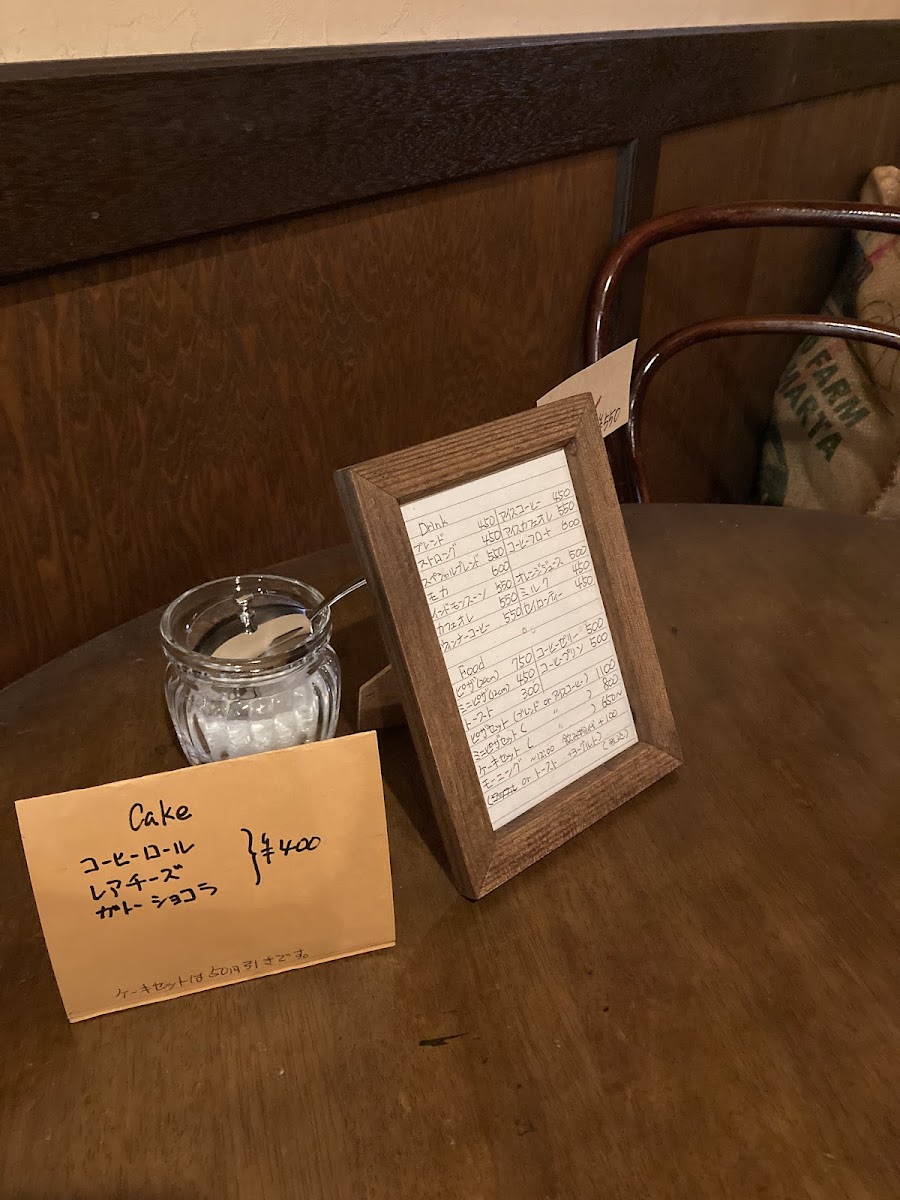 Cake
コーヒーロール
レアチーズ
ガトーショコラ
¥400
ケーキセットは50円引きです。
Drink
ブレンド 450 アイスコーヒー 450
ストロング 450 アイスカフェオレ 550
スペシャルブレンド 550 コーヒーフロート 600
モカ 600
インドモンスーン 550 オレンジジュース 500
カフェオレ 550 ミルク 450
ウィンナーコーヒー 550 セイロンティー 450
Food
ピザ(20cm) 750 コーヒーゼリー 500
ミニピザ(12cm) 450 コーヒープリン 500
トースト 300
ピザセット(ブレンド or アイスコーヒー) 1100
ミニピザセット( 〃 ) 800
ケーキセット( 〃 ) 650~
モーニング ~12:00 +100
or トースト +ヨーグルト) (税込)
¥550
FARM
ARYA